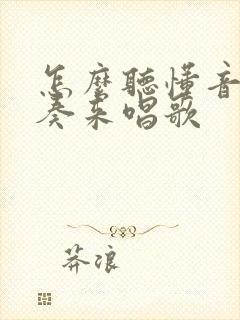 怎麼聽懂音
奏來唱歌
莽浪